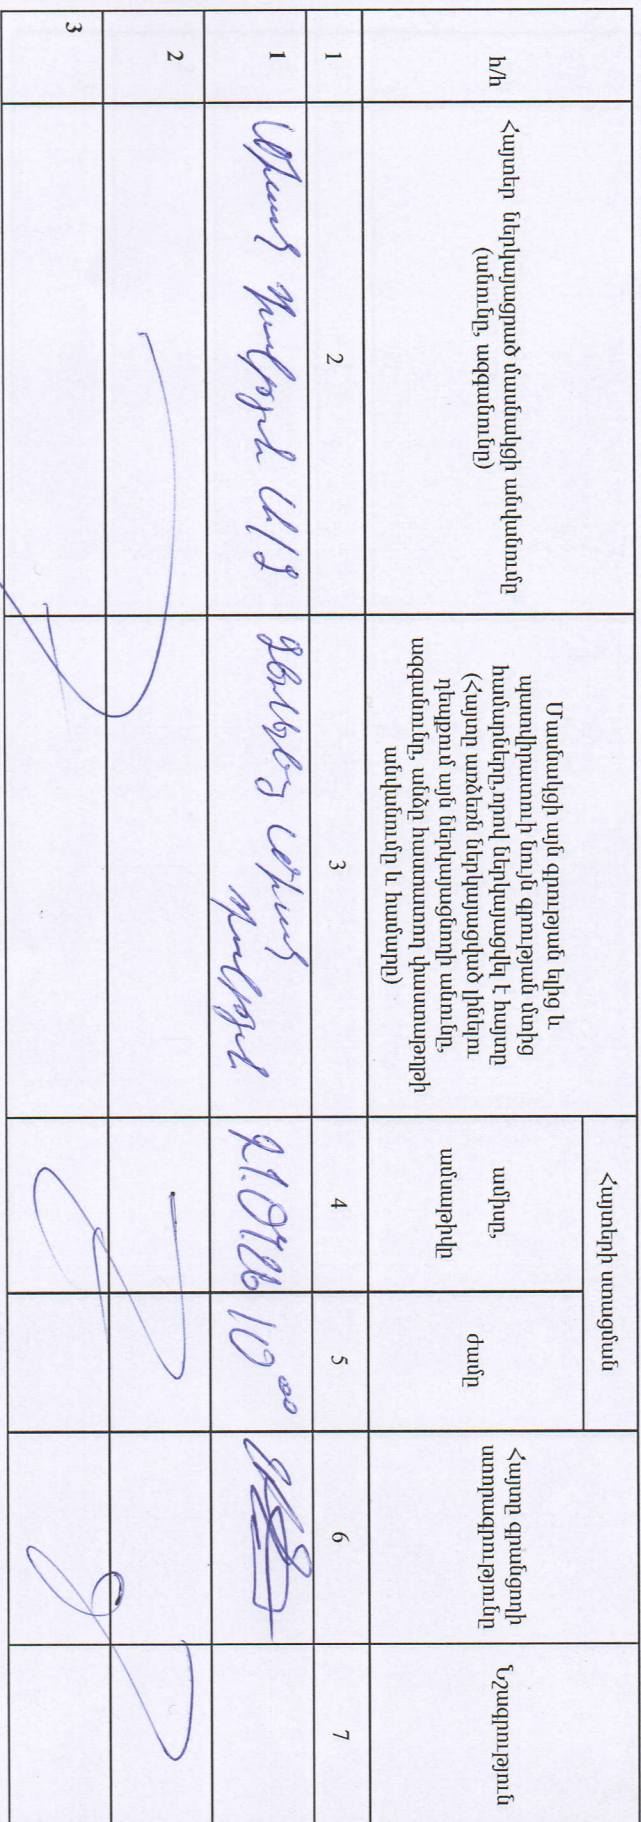 հ/հ
Հայտեր ներկայացրած մասնակցի անվանումը
(անունը, ազգանունը)
Մասնակցի այն գրության ելից և
պատվիրատուի նույն գրության մտից
համարները,որով ներկայացվել է հայտը
(Հայտը առձեռն ներկայացված լինելու
դեպքում այն ներկայացնողի անունը,
ազգանունը, անձը հաստատող փաստաթղթի
անվանումը և համարը)
Հայտերի ստացման
ամիսը,
ամսաթիվը
ժամը
Հայտը գրանցողի
ստորագրությունը
Նշագրության
1
2
3
4
5
6
7
1
Ա/Ձ
21.07.26
10⁰⁰
2
3